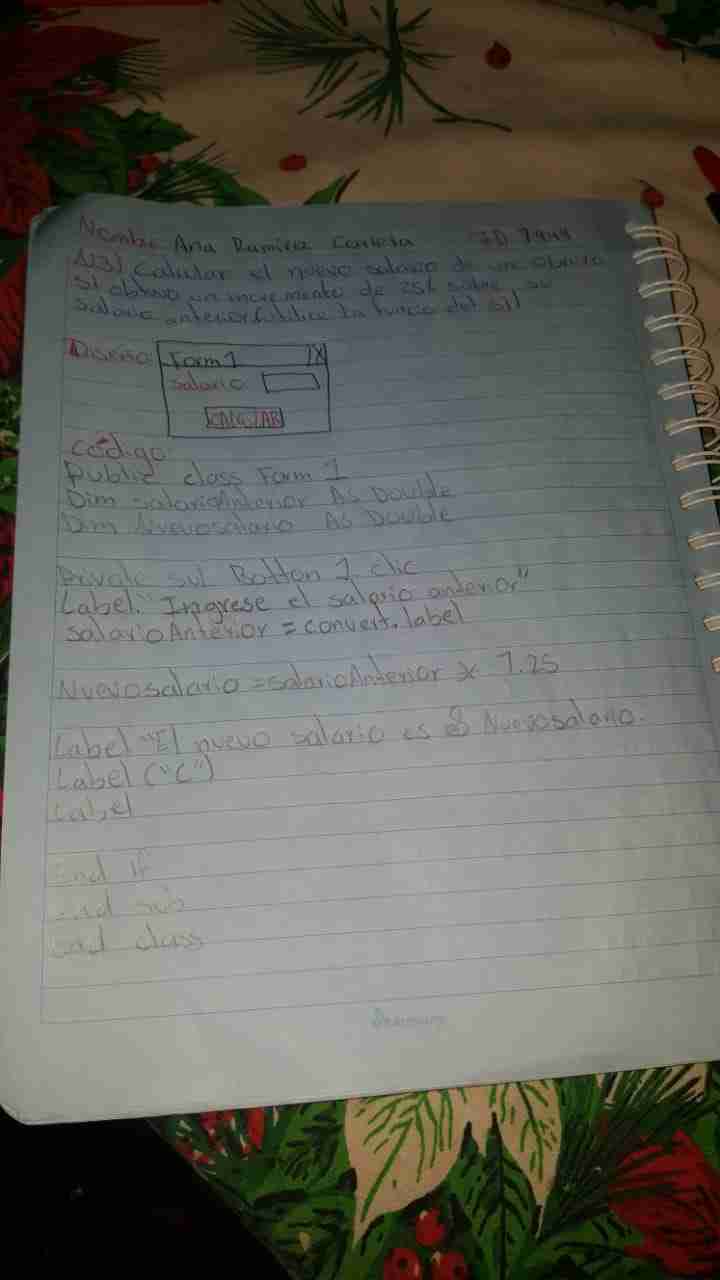 Nombre Ana Ramirez
#13) Calcular el nuevo salario de un obrero
si obtuvo un incremento de 25% sobre su
salario anterior utilice la
Diseño:
Form 1 X
salario
código:
public class Form 1
Dim salarioAnterior As Double
Dim Nuevosalario As Double
Button 1 clic
Label. "Ingrese el salario anterior"
salarioAnterior = convert.label
Nuevosalario = salarioAnterior x 1.25
Label "El nuevo salario es & Nuevosalario.
Label ("C")
Label
End If
End sub
End class